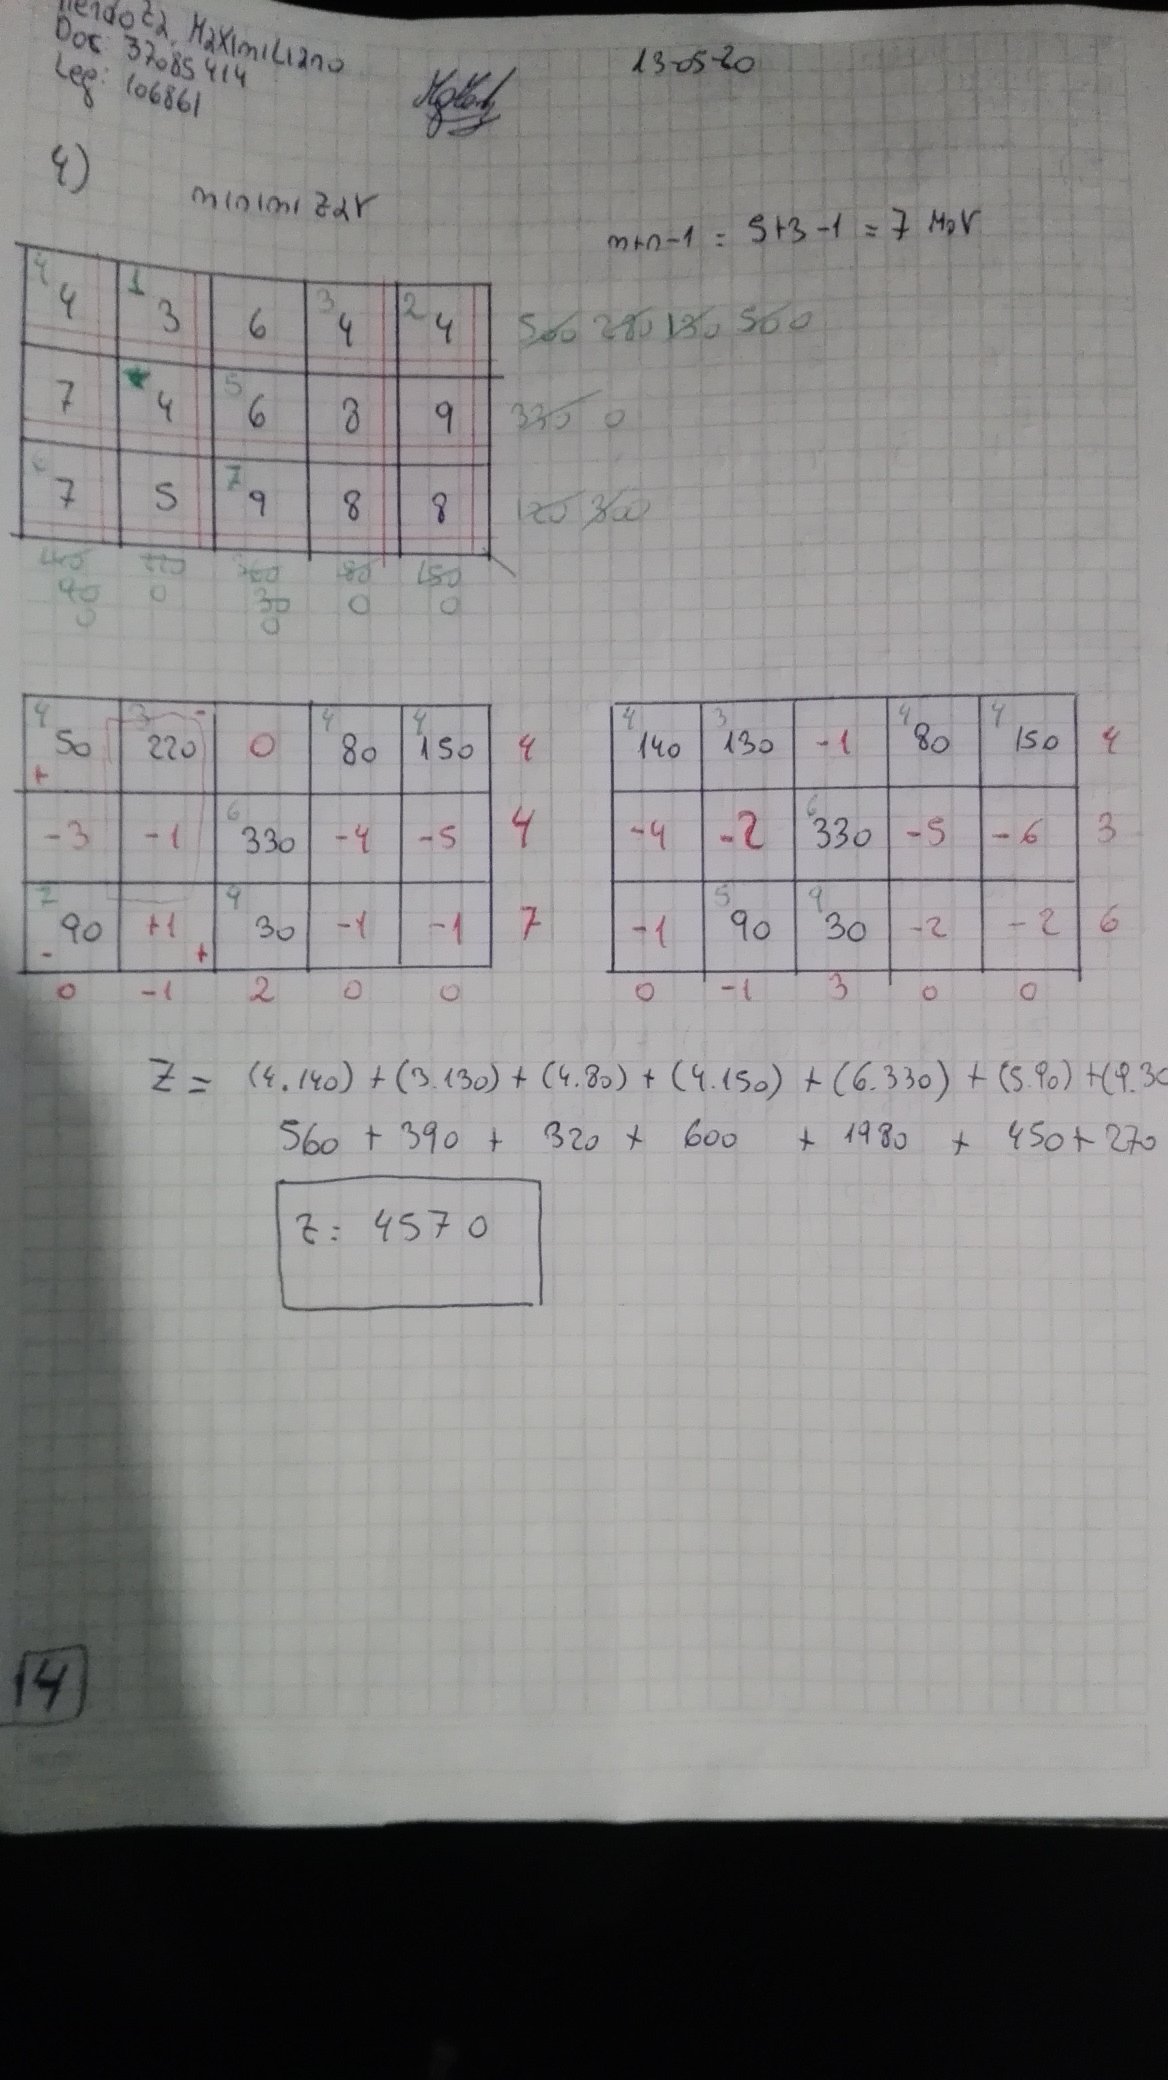 Mendoza, Maximiliano
Doc: 37085414
Leg: 106861
13-05-20
4)
minimizar
m+n-1 = 5+3-1 = 7 MoV
4 4 1 3 6 3 4 2 4 500 280 130 50 0
7 4 5 6 8 9 330 0
6 7 5 7 9 8 8 120 30 0
140 220 360 80 150
90 0 30 0 0
0 0
4 50 + 3 220 - 0 4 80 4 150 4
-3 -1 6 330 -4 -5 4
7 90 - +1 + 9 30 -1 -1 7
0 -1 2 0 0
4 140 3 130 -1 4 80 4 150 4
-4 -2 6 330 -5 -6 3
-1 5 90 9 30 -2 -2 6
0 -1 3 0 0
Z = (4.140) + (3.130) + (4.80) + (4.150) + (6.330) + (5.90) + (9.30
560 + 390 + 320 + 600 + 1980 + 450 + 270
Z = 4570
14